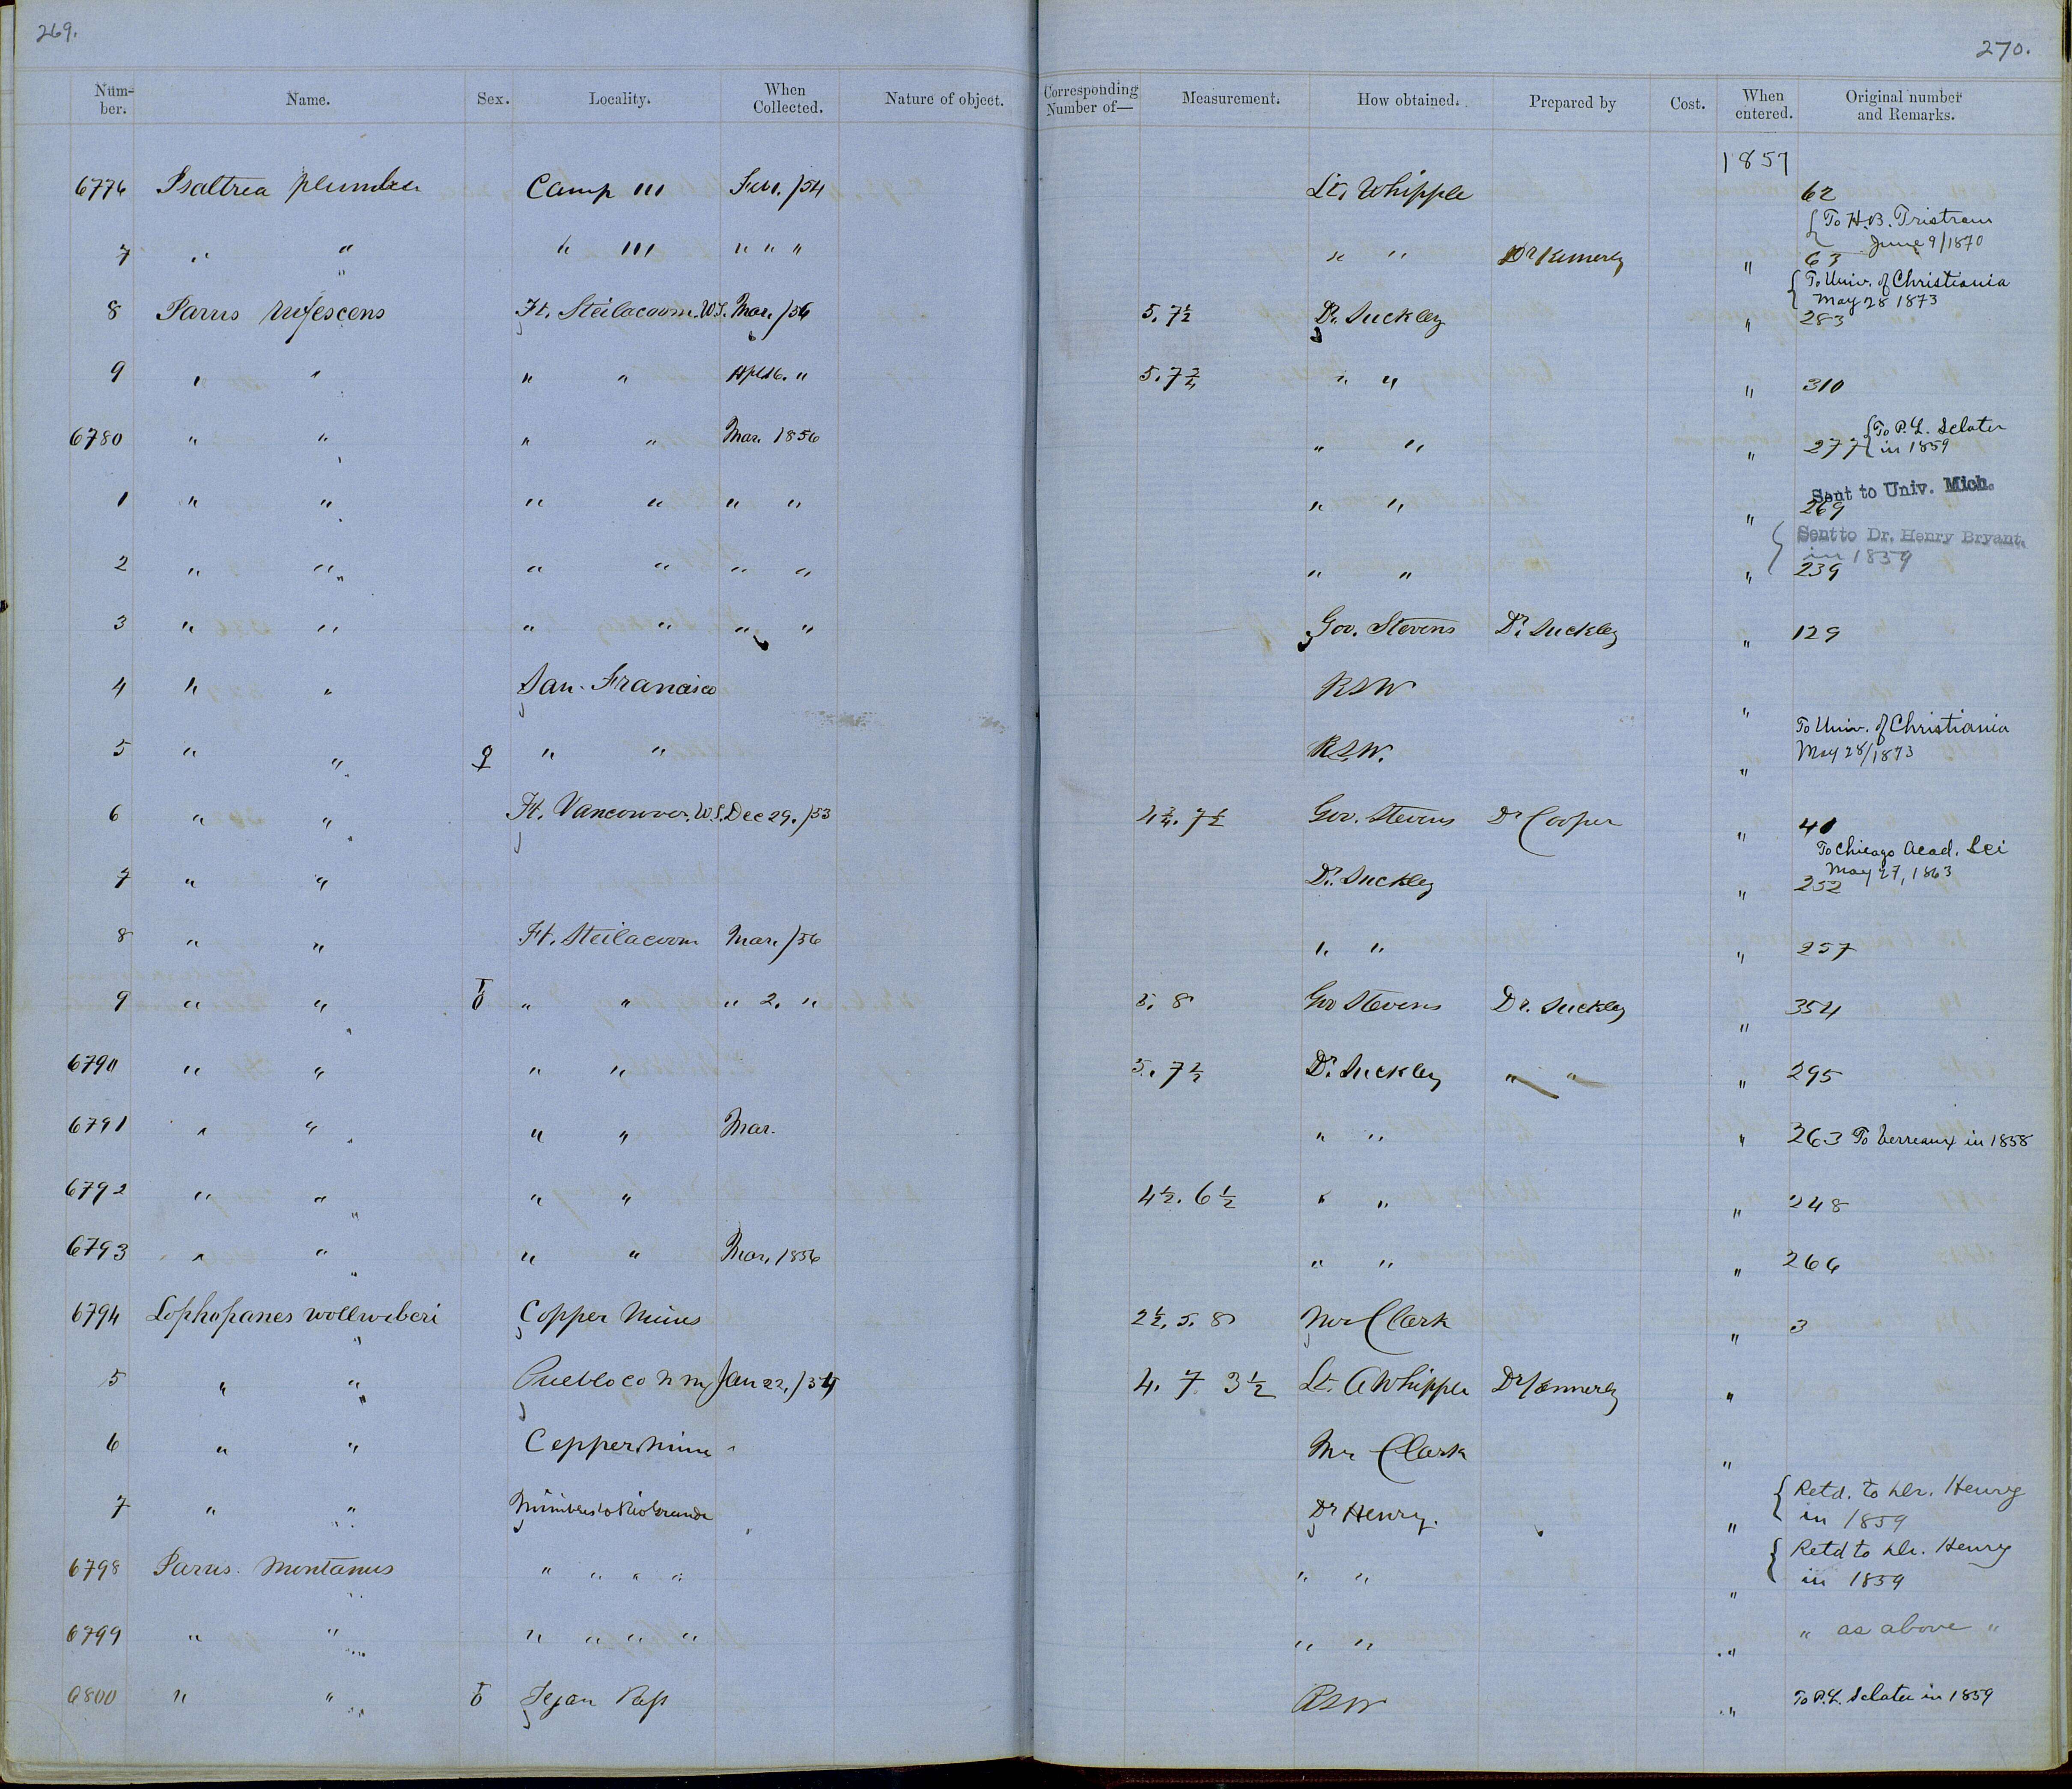 269.
270.
Num-ber. Name. Sex. Locality. When Collected. Nature of object. Corresponding Number of— Measurement. How obtained. Prepared by Cost. When entered. Original number and Remarks.
1857
6776 Psaltrea plumbea Camp 111 Feb. /54 Lt. Whipple 62
{To H.B. Tristram June 9/1870
7 " " " 111 " " " " " Dr Kennerly " 63
{To Univ. of Christiania May 28 1873
8 Parus rufescens Ft. Steilacoom. W.T. Mar. /56 5. 7½ Dr. Suckley " 283
9 " " " " " 5. 7 " " " 310
6780 " " " " Mar. 1856 " " " 277 {To P.L. Sclater in 1859
1 " " " " " " " " " 269
Sent to Univ. Mich.
2 " " " " " " " " " 239
{Sent to Dr. Henry Bryant. in 1859
3 " " " " " " Gov. Stevens Dr. Suckley " 129
4 " " San. Francisco RSW "
5 " " ♀ " " R.S.W. " To Univ. of Christiania May 28/1873
6 " " Ft. Vancouver. W.T. Dec 29. /53 4¾. 7½ Gov. Stevens Dr Cooper " 40
7 " " Dr. Suckley " 252
To Chicago Acad. Sci May 27, 1863
8 " " Ft. Steilacoom Mar. /56 " " " 257
9 " " ♂ " " " 2. " 5. 8 Gov Stevens Dr. Suckley " 354
6790 " " " " 5. 7½ Dr. Suckley " " " 295
6791 " " " " Mar. " " " 263 To Verreaux in 1858
6792 " " " " 4½. 6½ " " " 248
6793 " " " " Mar. 1856 " " " 266
6794 Lophopanes wollweberi Copper Mines 2½. 5. 8 Mr Clark " 3
5 " " Pueblo Co N M Jan 22. /54 4. 7 3½ Lt. A Whipple Dr Kennerly "
6 " " Copper Mine " Mr Clark "
7 " " Mimbres to Rio Grande Dr Henry. " {Retd. to Dr. Henry in 1859
6798 Parus. Montanus " " " " " " " {Retd to Dr. Henry in 1859
6799 " " " " " " " " " " as above "
6800 " " ♂ Tejon Pass RSW " To P.L. Sclater in 1859